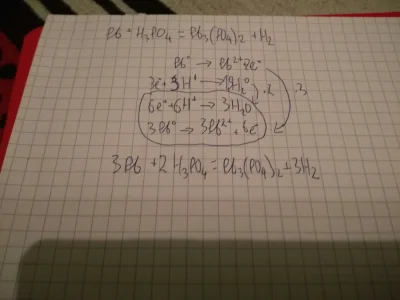 Pb + H₃PO₄ = Pb₃(PO₄)₂ + H₂
Pb⁰ → Pb²⁺ 2e⁻
3e⁻ + 3H⁺ → H₂⁰ ·2 3
6e⁻ + 6H⁺ → 3H₂0
3Pb⁰ → 3Pb²⁺ + 6e⁻
3Pb + 2 H₃PO₄ = Pb₃(PO₄)₂ + 3H₂